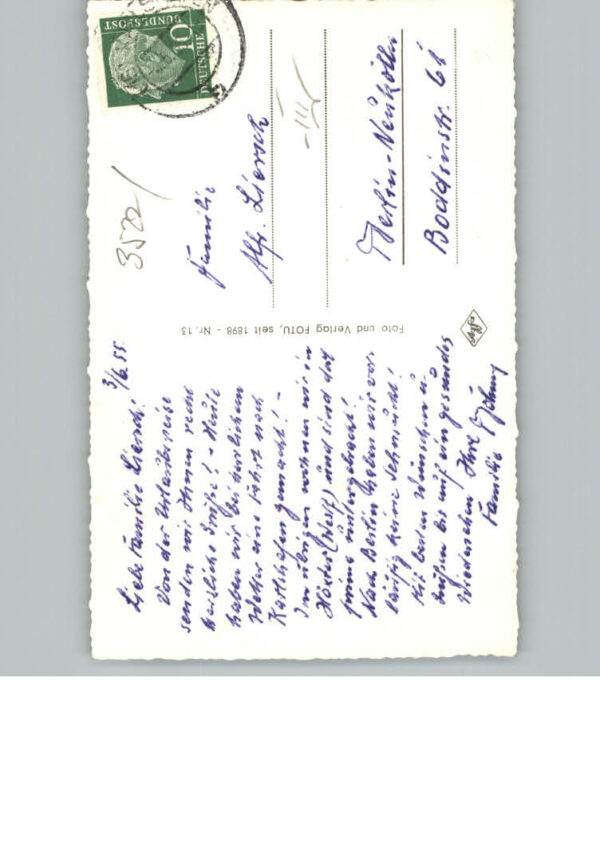 3/6.55.
Liebe Familie Liersch!
Von der Urlaubsreise
senden wir Ihnen recht
herzliche Grüße! - Heute
haben wir bei herrlichem
Wetter eine Fahrt nach
Karlshafen gemacht! -
Im übrigen wohnen wir in
Höxter (Westf) und sind dort
prima untergebracht!
Nach Berlin haben wir vor-
läufig keine Sehnsucht!
Mit besten Wünschen u.
Grüßen bis auf ein gesundes
Wiedersehen Ihre
Familie
Foto und Verlag FOTU, seit 1898 - Nr. 13
Agfa
3522/
DEUTSCHE
BUNDESPOST
10
Familie
Alfr. Liersch
- III
Berlin-Neukölln
Boddinstr. 61